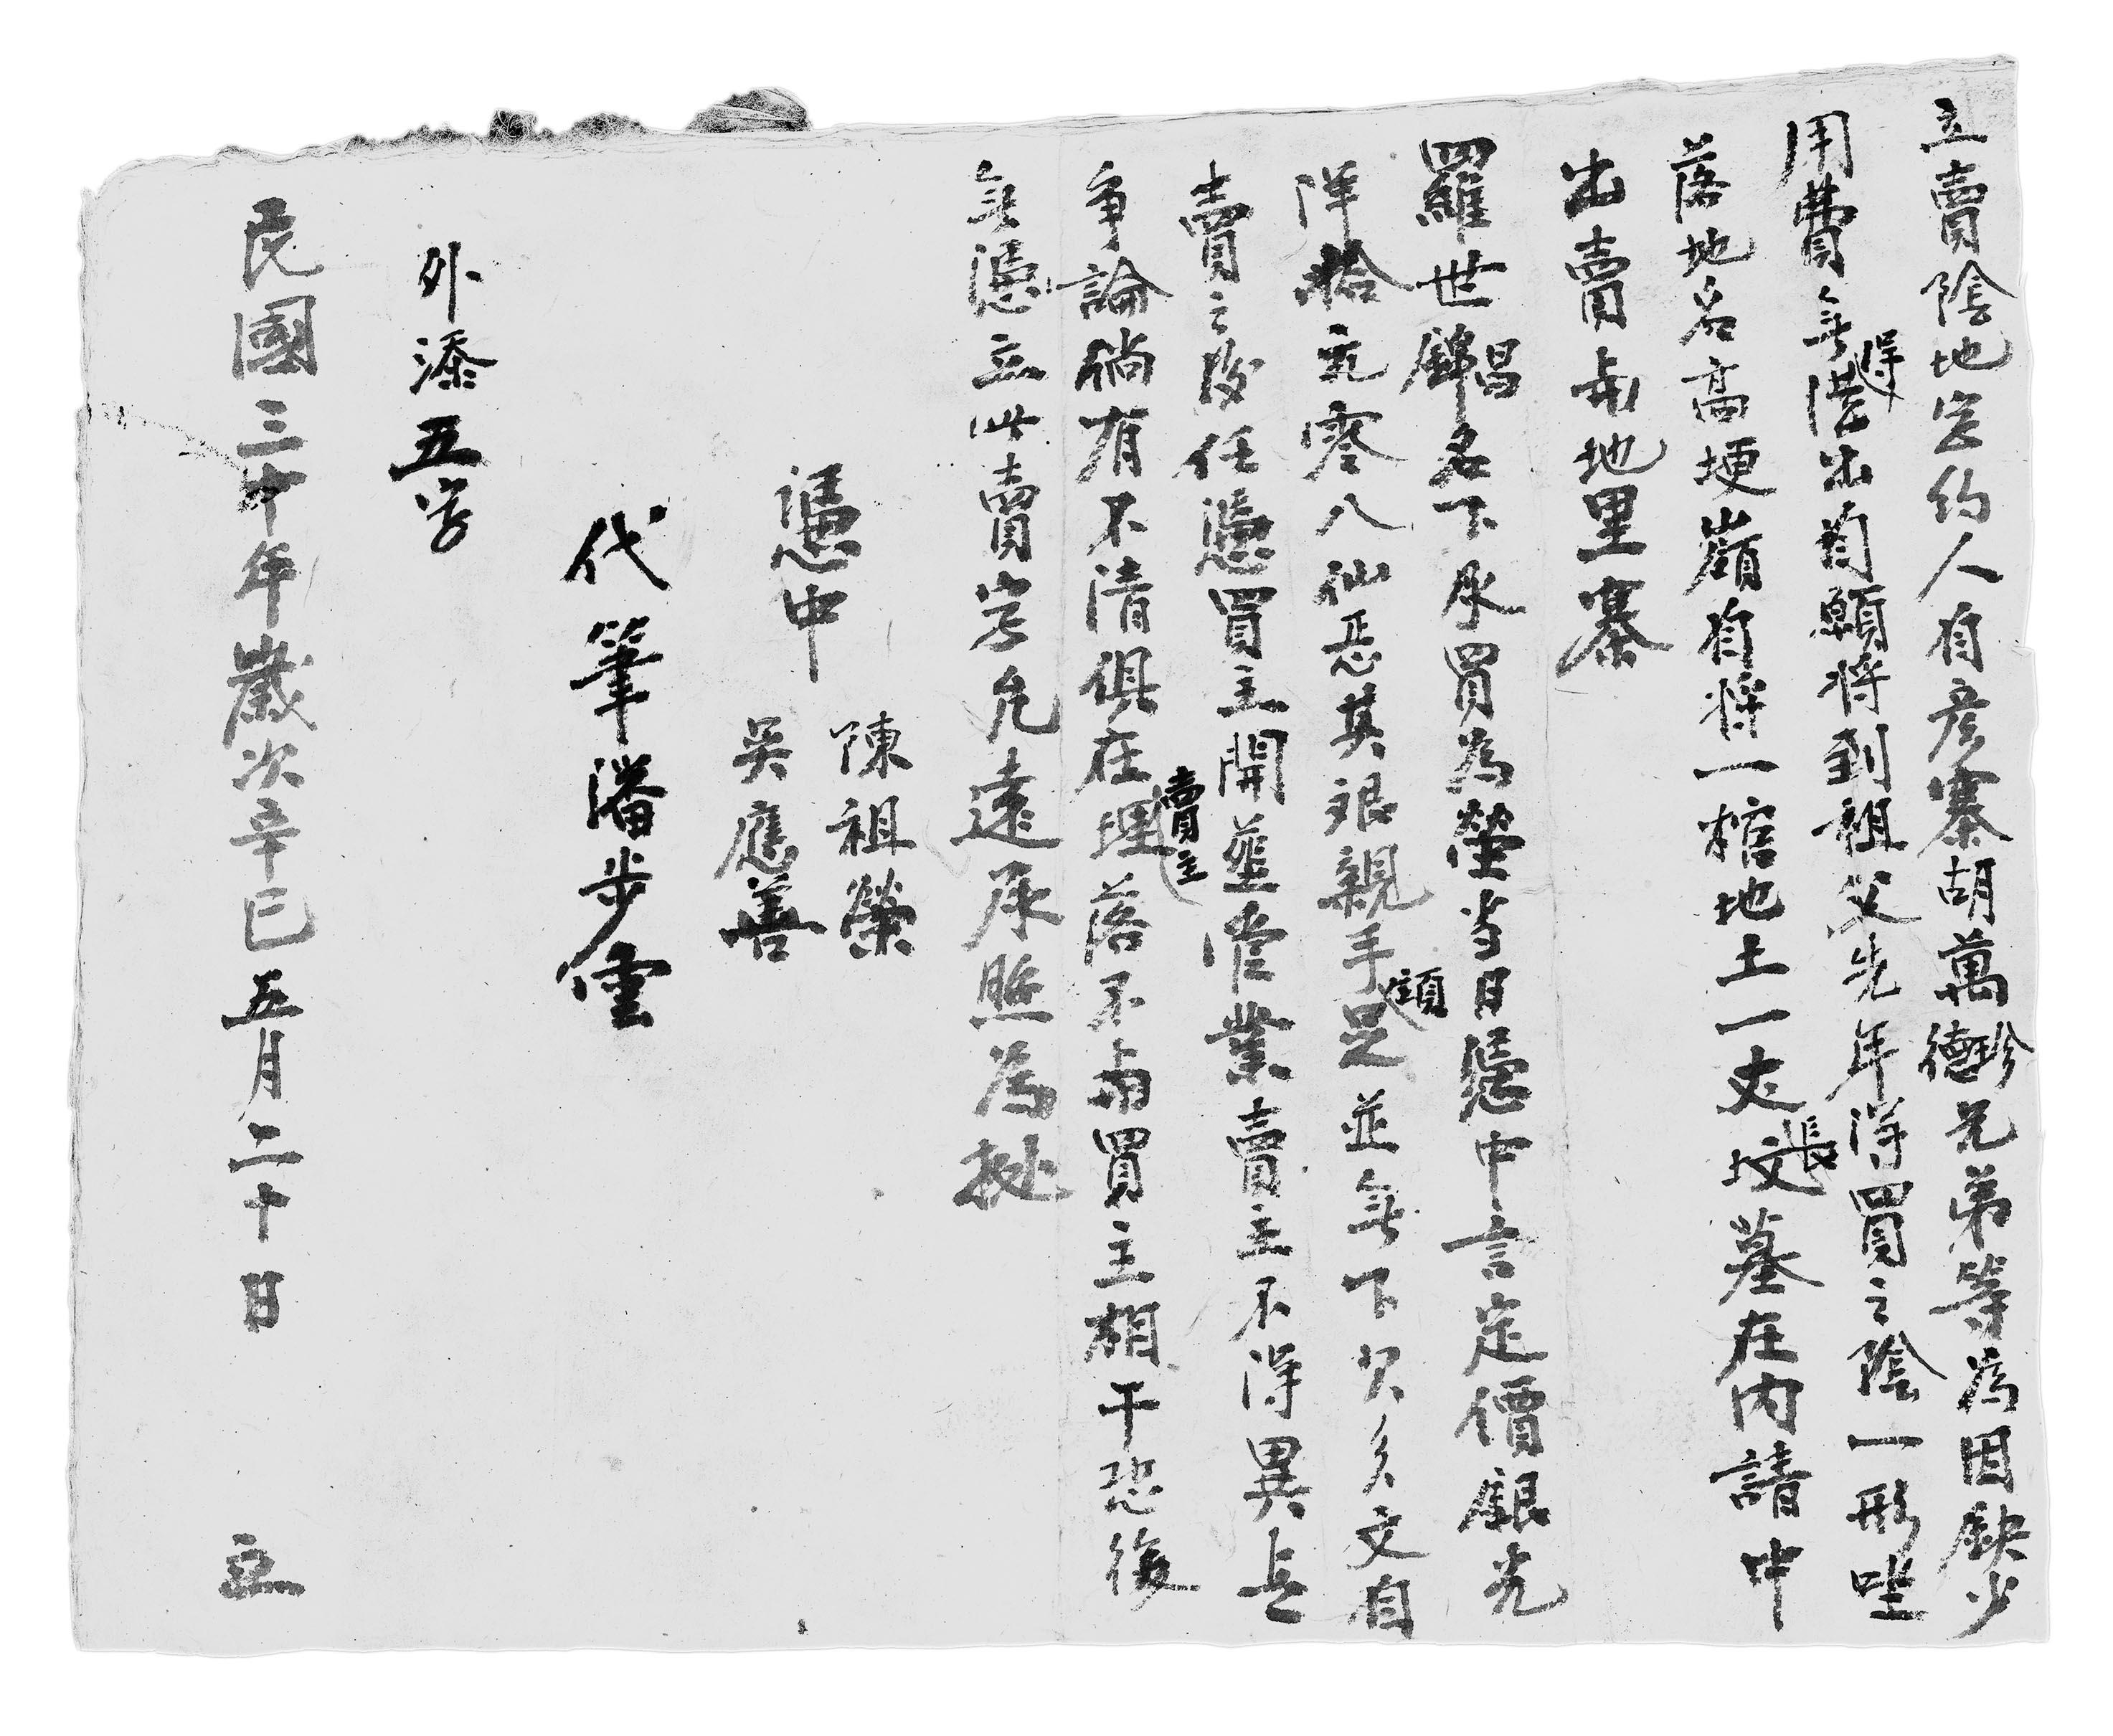 立賣陰地字約人有彦寨胡萬德珍兄弟等為因缺少
用費無得從出自願将到祖父先年得買之陰一形坐
落地名高埂嶺自将一棺地土一丈長坟墓在内請中
出賣與地里寨
羅世錦昌名下承買為塋當日憑中言定價銀光
洋拾元零八仙正其銀親手領足並無下欠分文自
賣之後任憑買主開塟管業賣主不得異言
争論倘有不清俱在賣主理落不與買主相干恐後
無憑立此賣字允遠承照為㨿
憑中 陳祖榮
吳應善
代筆潘步雲
外添五字
民國三十年歲次辛巳五月二十日 立